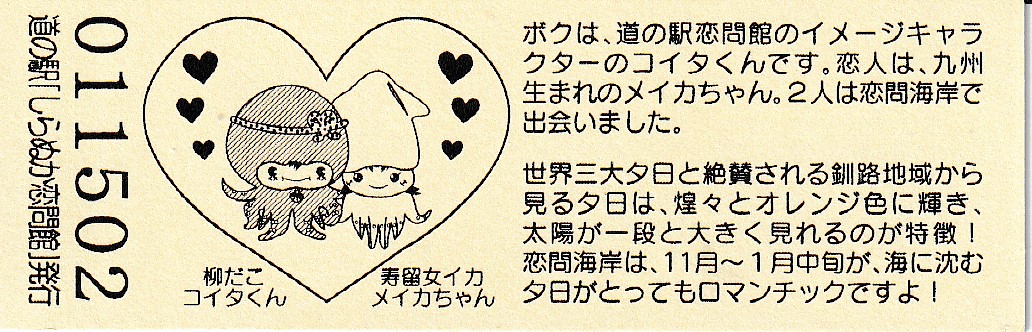 011502
道の駅「しらぬか恋問館」発行
柳だこ
コイタくん
寿留女イカ
メイカちゃん
ボクは、道の駅恋問館のイメージキャラ
クターのコイタくんです。恋人は、九州
生まれのメイカちゃん。2人は恋問海岸で
出会いました。
世界三大夕日と絶賛される釧路地域から
見る夕日は、煌々とオレンジ色に輝き、
太陽が一段と大きく見れるのが特徴！
恋問海岸は、11月～1月中旬が、海に沈む
夕日がとってもロマンチックですよ！